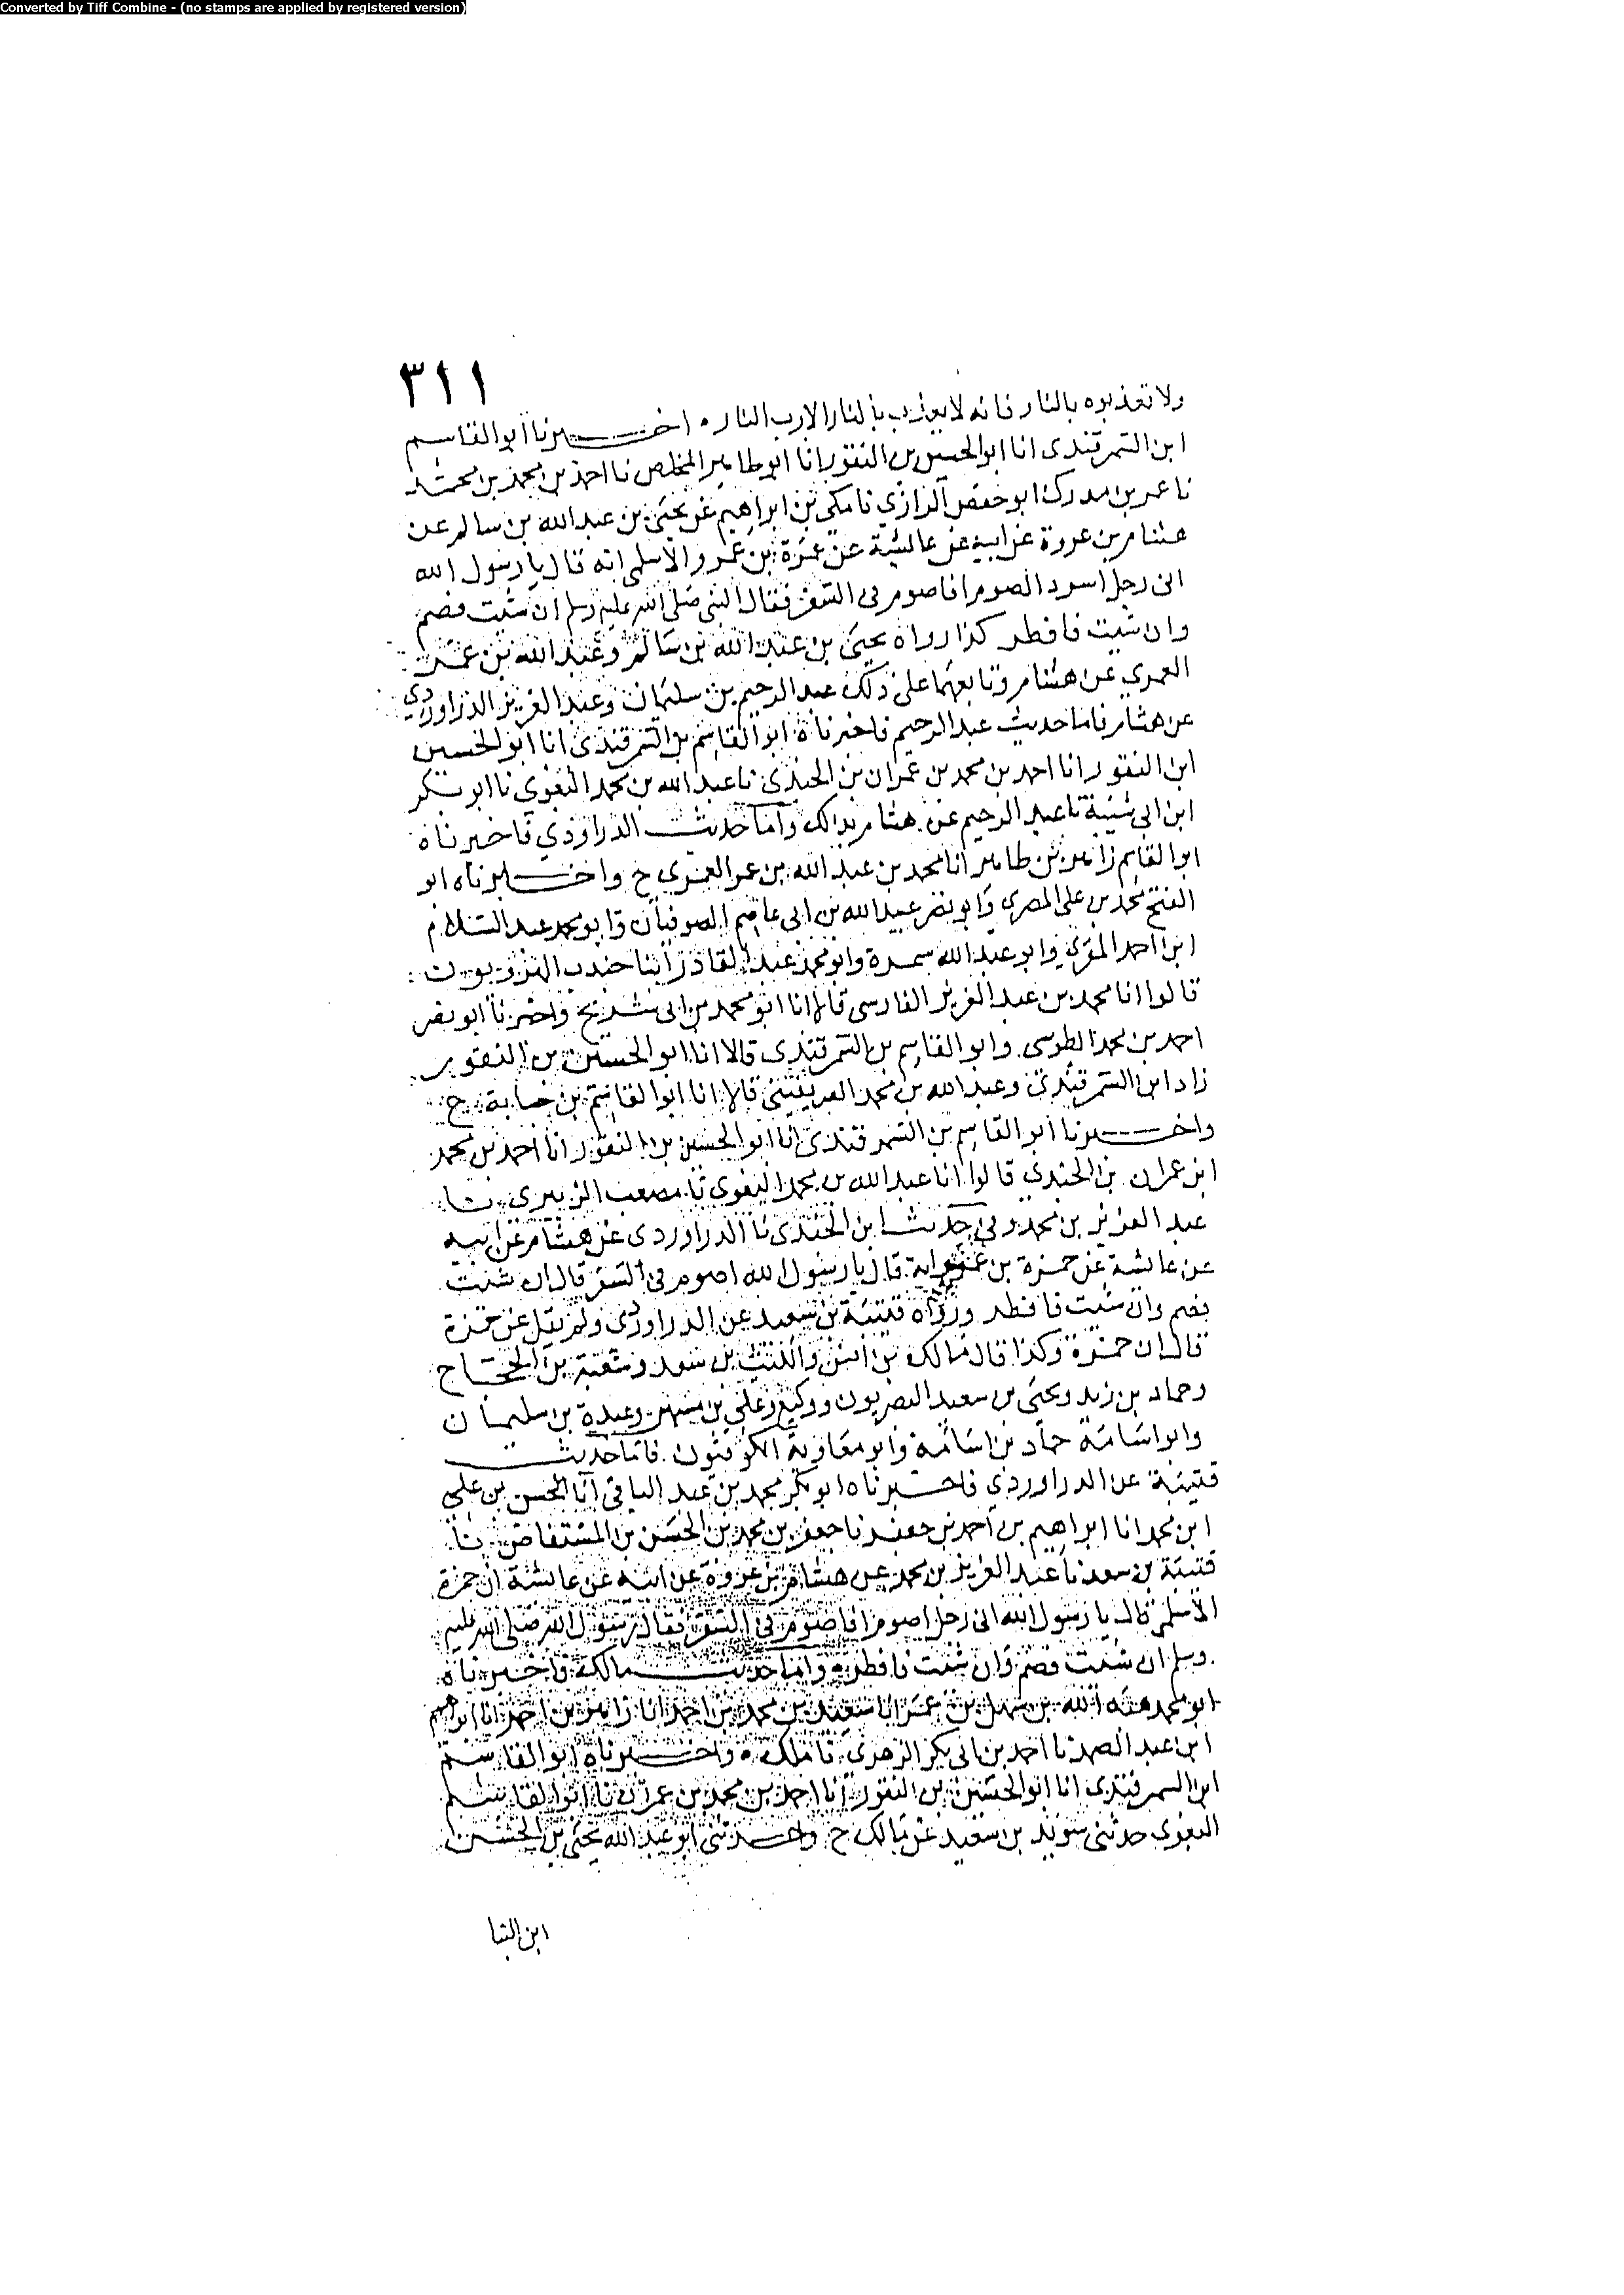 Converted by Tiff Combine - (no stamps are applied by registered version)
٣١١
ولا تعذبوه بالنار فانه لا يعذب بالنار الا رب النار ه اخبرنا ابو القاسم
ابن السمرقندي انا ابو الحسين بن النقور انا ابو طاهر المخلص نا احمد بن محمد بن محمد
نا عمر بن مدرك ابو حفص الرازي نا مكي بن ابراهيم عن يحيى بن عبد الله بن سالم عن
هشام بن عروة عن ابيه عن عائشة عن حمزة بن عمرو الاسلمي انه قال يا رسول الله
اني رجل اسرد الصوم افاصوم في السفر فقال النبي صلى الله عليه وسلم ان شيت فصم
وان شيت فافطر كذا رواه يحيى بن عبد الله بن سالم وعبد الله بن عمر
العمري عن هشام وتابعهما على ذلك عبد الرحيم بن سليمان وعبد العزيز الدراوردي
عن هشام فاما حديث عبد الرحيم فاخبرناه ابو القاسم بن السمرقندي انا ابو الحسين
ابن النقور انا احمد بن محمد بن عمران بن الجندي نا عبد الله بن محمد البغوي نا ابو بكر
ابن ابي شيبة نا عبد الرحيم عن هشام بذلك واما حديث الدراوردي فاخبرناه
ابو القاسم زاهر بن طاهر انا محمد بن عبد الله بن عمر العمري ح واخبرناه ابو
الفتح محمد بن علي المصري وابو نصر عبيد الله بن ابي عاصم الصوفيان وابو محمد عبد السلام
ابن احمد المقري وابو عبد الله سمرة وابو محمد عبد القادر ابنا جندب الهرويون
قالوا انا محمد بن عبد العزيز الفارسي قالا انا ابو محمد بن ابي شريح واخبرنا ابو نصر
احمد بن محمد الطوسي وابو القاسم بن السمرقندي قالا انا ابو الحسين بن النقور
زاد ابن السمرقندي وعبد الله بن محمد الصريفيني قالا انا ابو القاسم بن حبابة ح
واخبرنا ابو القاسم بن السمرقندي انا ابو الحسين بن النقور انا احمد بن محمد
ابن عمران بن الجندي قالوا انا عبد الله بن محمد البغوي نا مصعب الزبيري نا
عبد العزيز بن محمد وفي حديث ابن الجندي نا الدراوردي عن هشام عن ابيه
عن عائشة عن حمزة بن عمرو انه قال يا رسول الله اصوم في السفر قال ان شئت
فصم وان شيت فافطر ورواه قتيبة بن سعيد عن الدراوردي ولم يقل عن حمزة
قال ان حمزة وكذا قال مالك بن انس والليث بن سعد وشعبة بن الحجاج
وحماد بن زيد ويحيى بن سعيد البصريون ووكيع وعلي بن مسهر وعبدة بن سليمان
وابو اسامة حماد بن اسامة وابو معاوية الكوفيون فاما حديث
قتيبة عن الدراوردي فاخبرناه ابو بكر محمد بن عبد الباقي انا الحسن بن علي
ابن محمد انا ابراهيم بن احمد بن جعفر نا جعفر بن محمد بن الحسن بن المستفاض نا
قتيبة بن سعيد نا عبد العزيز بن محمد عن هشام بن عروة عن ابيه عن عائشة ان حمزة
الاسلمي قال يا رسول الله اني رجل اصوم افاصوم في السفر فقال رسول الله صلى الله عليه
وسلم ان شئت فصم وان شئت فافطر ه واما حديث مالك فاخبرناه
ابو محمد هبة الله بن سهل بن عمر انا سعيد بن محمد بن احمد انا زاهر بن احمد انا ابراهيم
ابن عبد الصمد نا احمد بن ابي بكر الزهري نا ملك ه واخبرناه ابو القاسم
ابن السمرقندي انا ابو الحسين بن النقور انا احمد بن محمد بن عمران نا ابو القاسم
البغوي حدثني سويد بن سعيد عن مالك ح وحدثني ابو عبد الله يحيى بن الحسن
ابن البنا